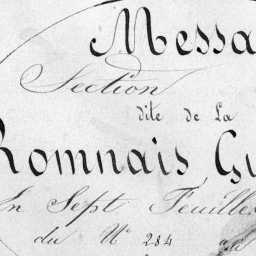 Messa
Section
dite de La
Romnais Gu
En Sept Feuilles
du N° 284 au